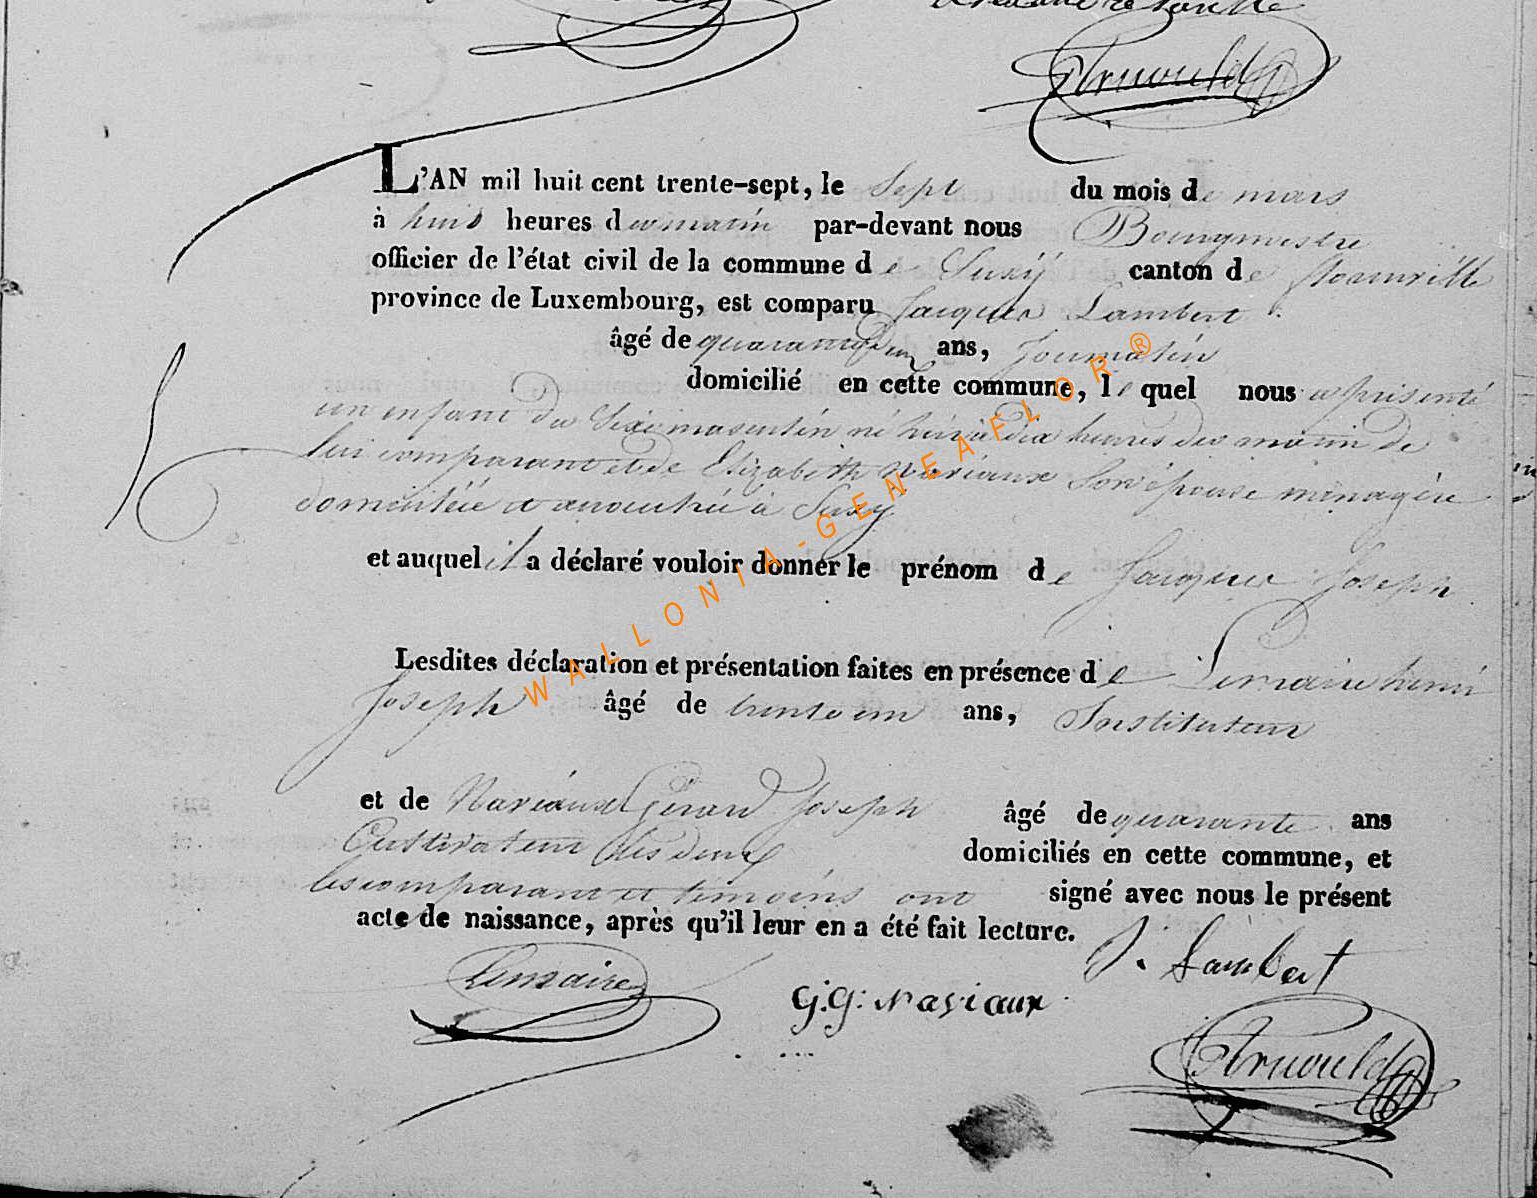 Arnould
L'AN mil huit cent trente-sept, le sept du mois de mars
à huit heures du matin par-devant nous Bourgmestre
officier de l'état civil de la commune de Suxÿ canton de
province de Luxembourg, est comparu Jacques Lambert
âgé de quarante un ans,
domicilié en cette commune, lequel nous a présenté
un enfant du sexe masculin né hier à dix heures du matin de
lui comparant et de Elizabeth Naviaux son épouse ménagère
domiciliée et accouchée à Suxy
et auquel il a déclaré vouloir donner le prénom de Jacques Joseph
Lesdites déclaration et présentation faites en présence de Lemaire henri
Joseph âgé de trente un ans, Instituteur
et de Naviaux Gérard Joseph âgé de quarante ans
Cultivateur les deux domiciliés en cette commune, et
les comparant et témoins ont signé avec nous le présent
acte de naissance, après qu'il leur en a été fait lecture.
J. Lambert
Lemaire
G:G: Naviaux
Arnould
WALLONIA-GENEAFLOR®